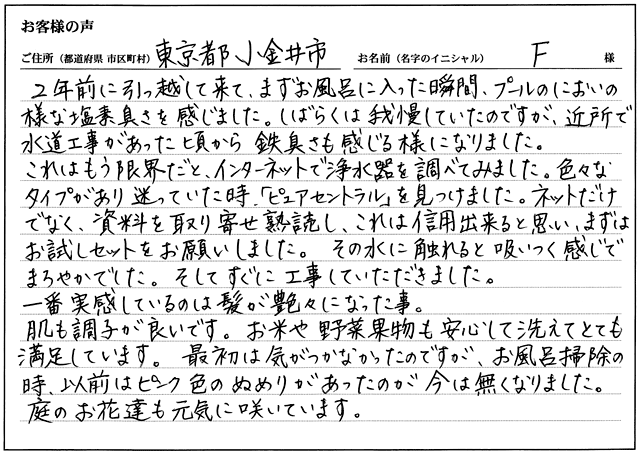 お客様の声
ご住所（都道府県 市区町村）東京都小金井市 お名前（名字のイニシャル） F 様
2年前に引っ越して来て、まずお風呂に入った瞬間、プールのにおいの
様な塩素臭さを感じました。しばらくは我慢していたのですが、近所で
水道工事があった頃から鉄臭さも感じる様になりました。
これはもう限界だと、インターネットで浄水器を調べてみました。色々な
タイプがあり迷っていた時、「ピュアセントラル」を見つけました。ネットだけ
でなく、資料を取り寄せ熟読し、これは信用出来ると思い、まずは
お試しセットをお願いしました。その水に触れると吸いつく感じで
まろやかでした。そしてすぐに工事していただきました。
一番実感しているのは髪が艶々になった事。
肌も調子が良いです。お米や野菜果物も安心して洗えてとても
満足しています。最初は気がつかなかったのですが、お風呂掃除の
時、以前はピンク色のぬめりがあったのが今は無くなりました。
庭のお花達も元気に咲いています。